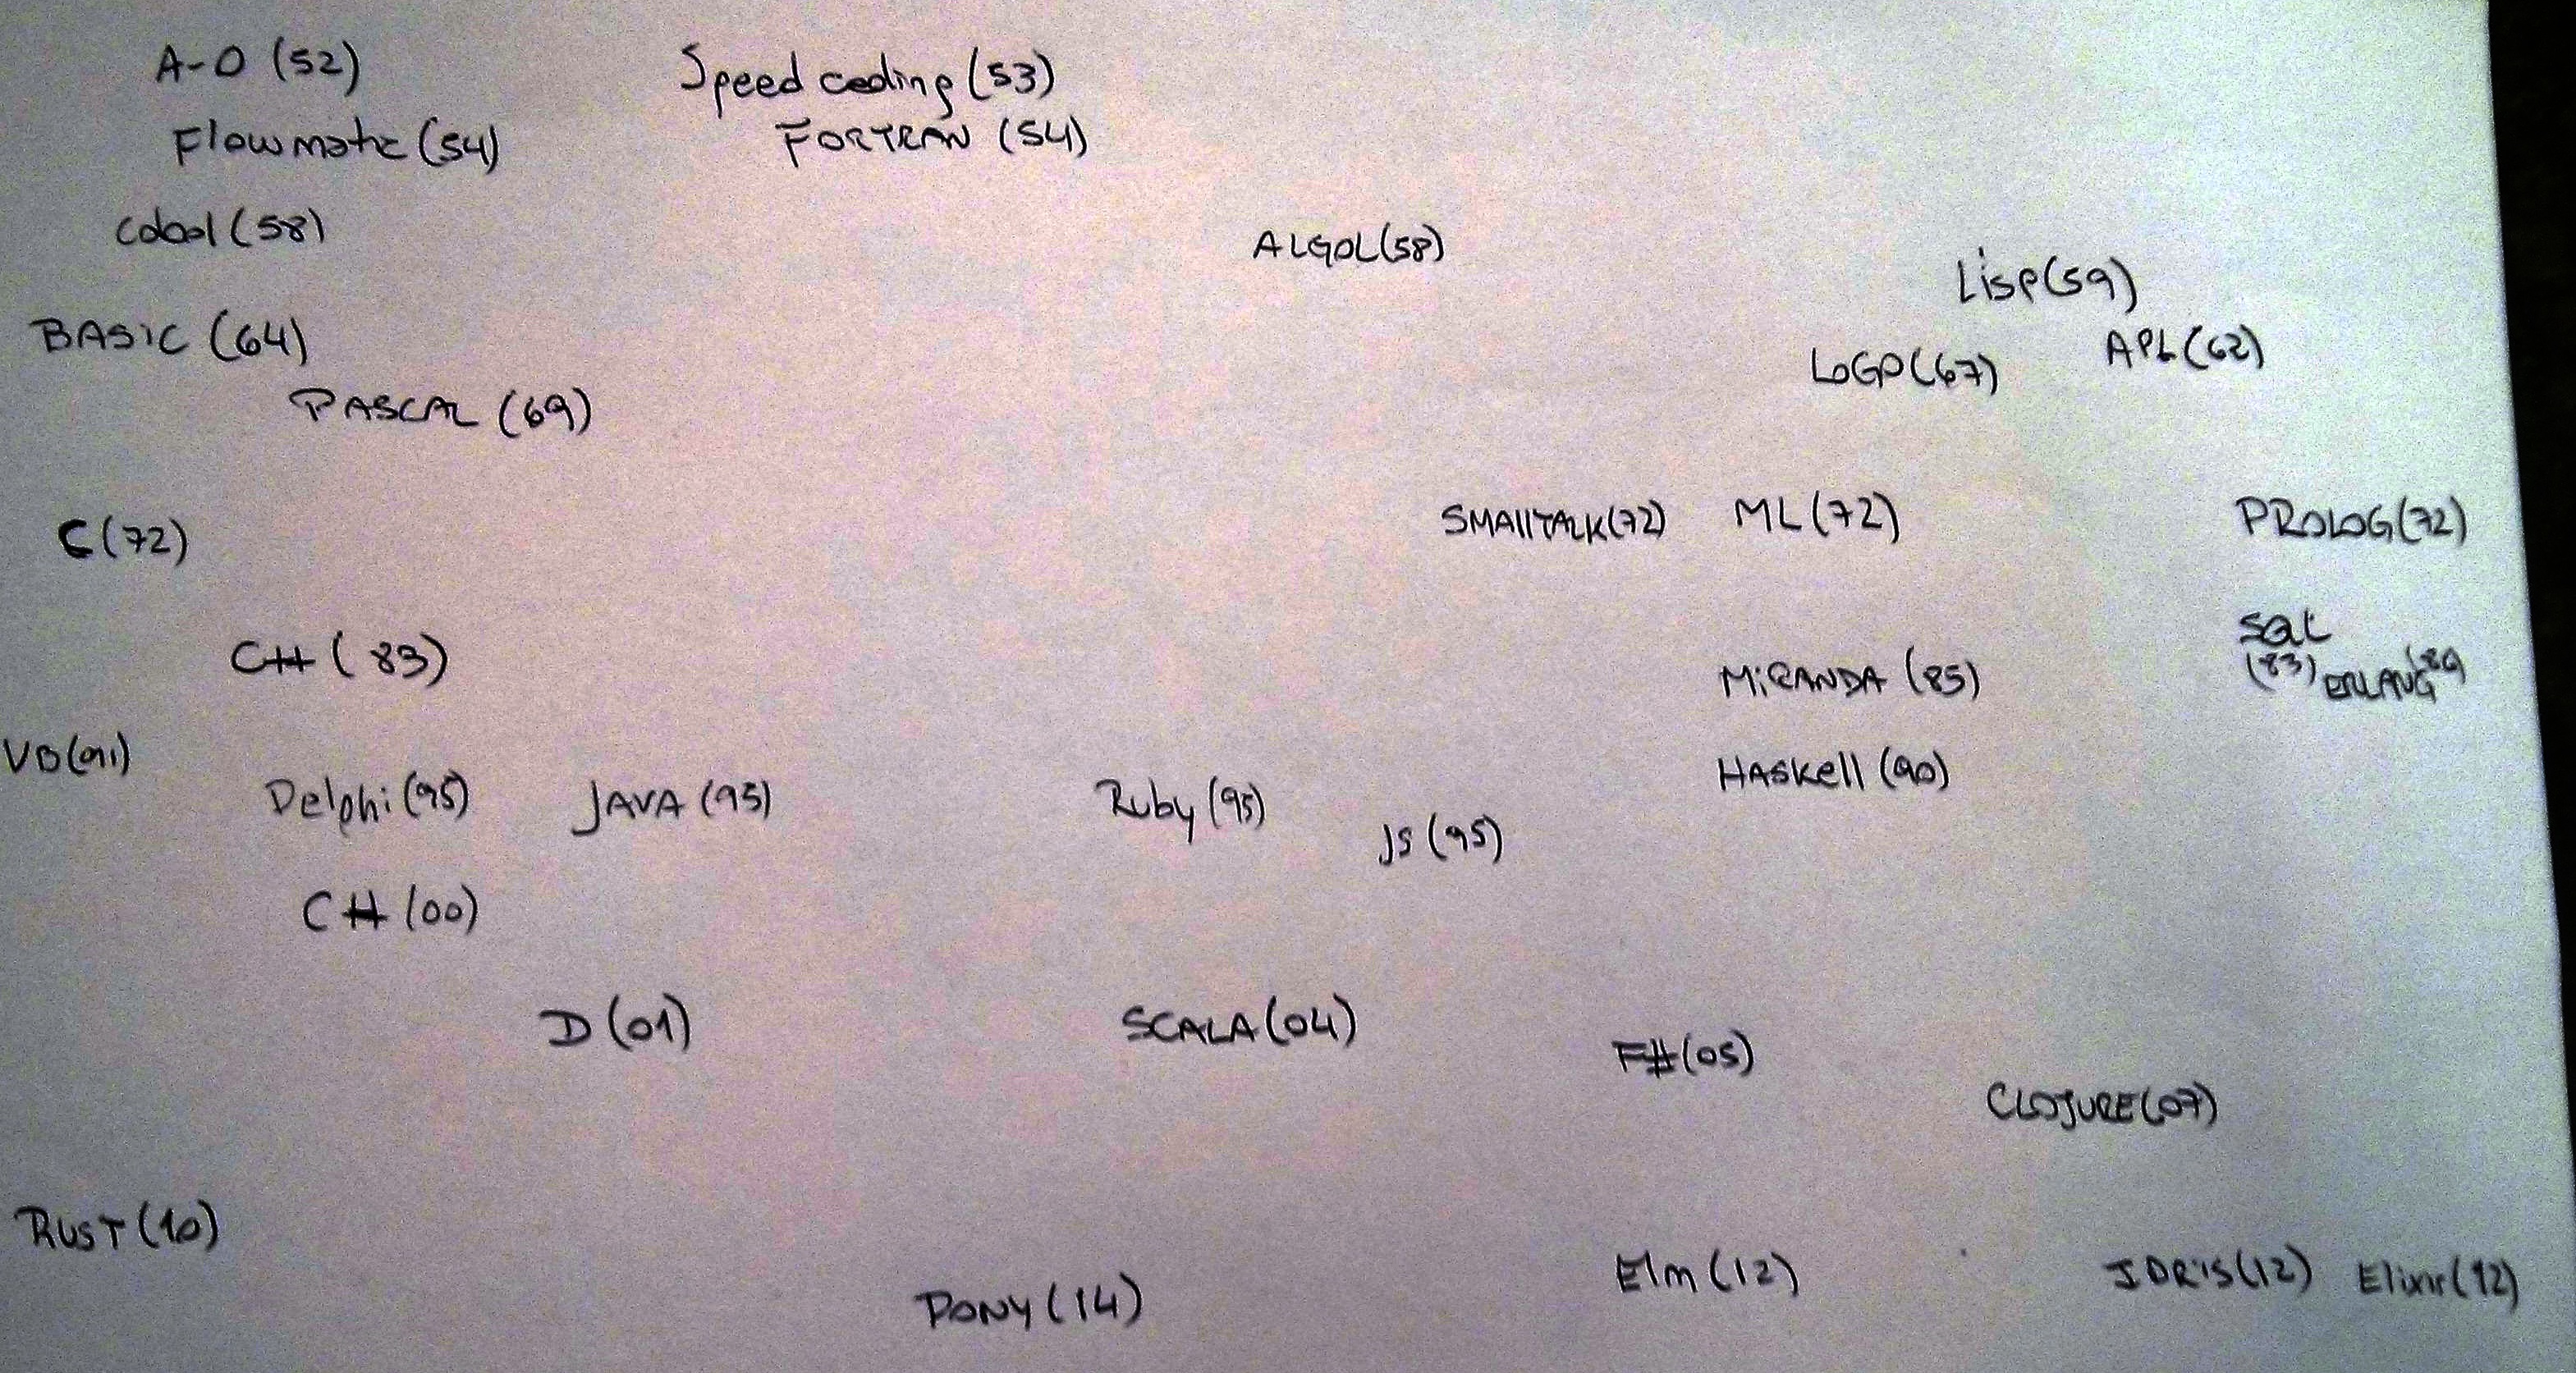 A-0 (52)
Speed coding (53)
Flowmatic (54)
FORTRAN (54)
Cobol (58)
ALGOL (58)
Lisp (59)
BASIC (64)
APL (62)
LOGO (67)
PASCAL (69)
C (72)
SMAllTALK (72)
ML (72)
PROLOG (72)
C++ (83)
MiRANDA (85)
SQL
(83)
ERLANG (89
VB (91)
Delphi (95)
JAVA (95)
Ruby (95)
JS (95)
HASKell (90)
C# (00)
D (01)
SCALA (04)
F# (05)
CLOJURE (07)
RUST (10)
PONY (14)
Elm (12)
IDRiS (12)
Elixir (12)